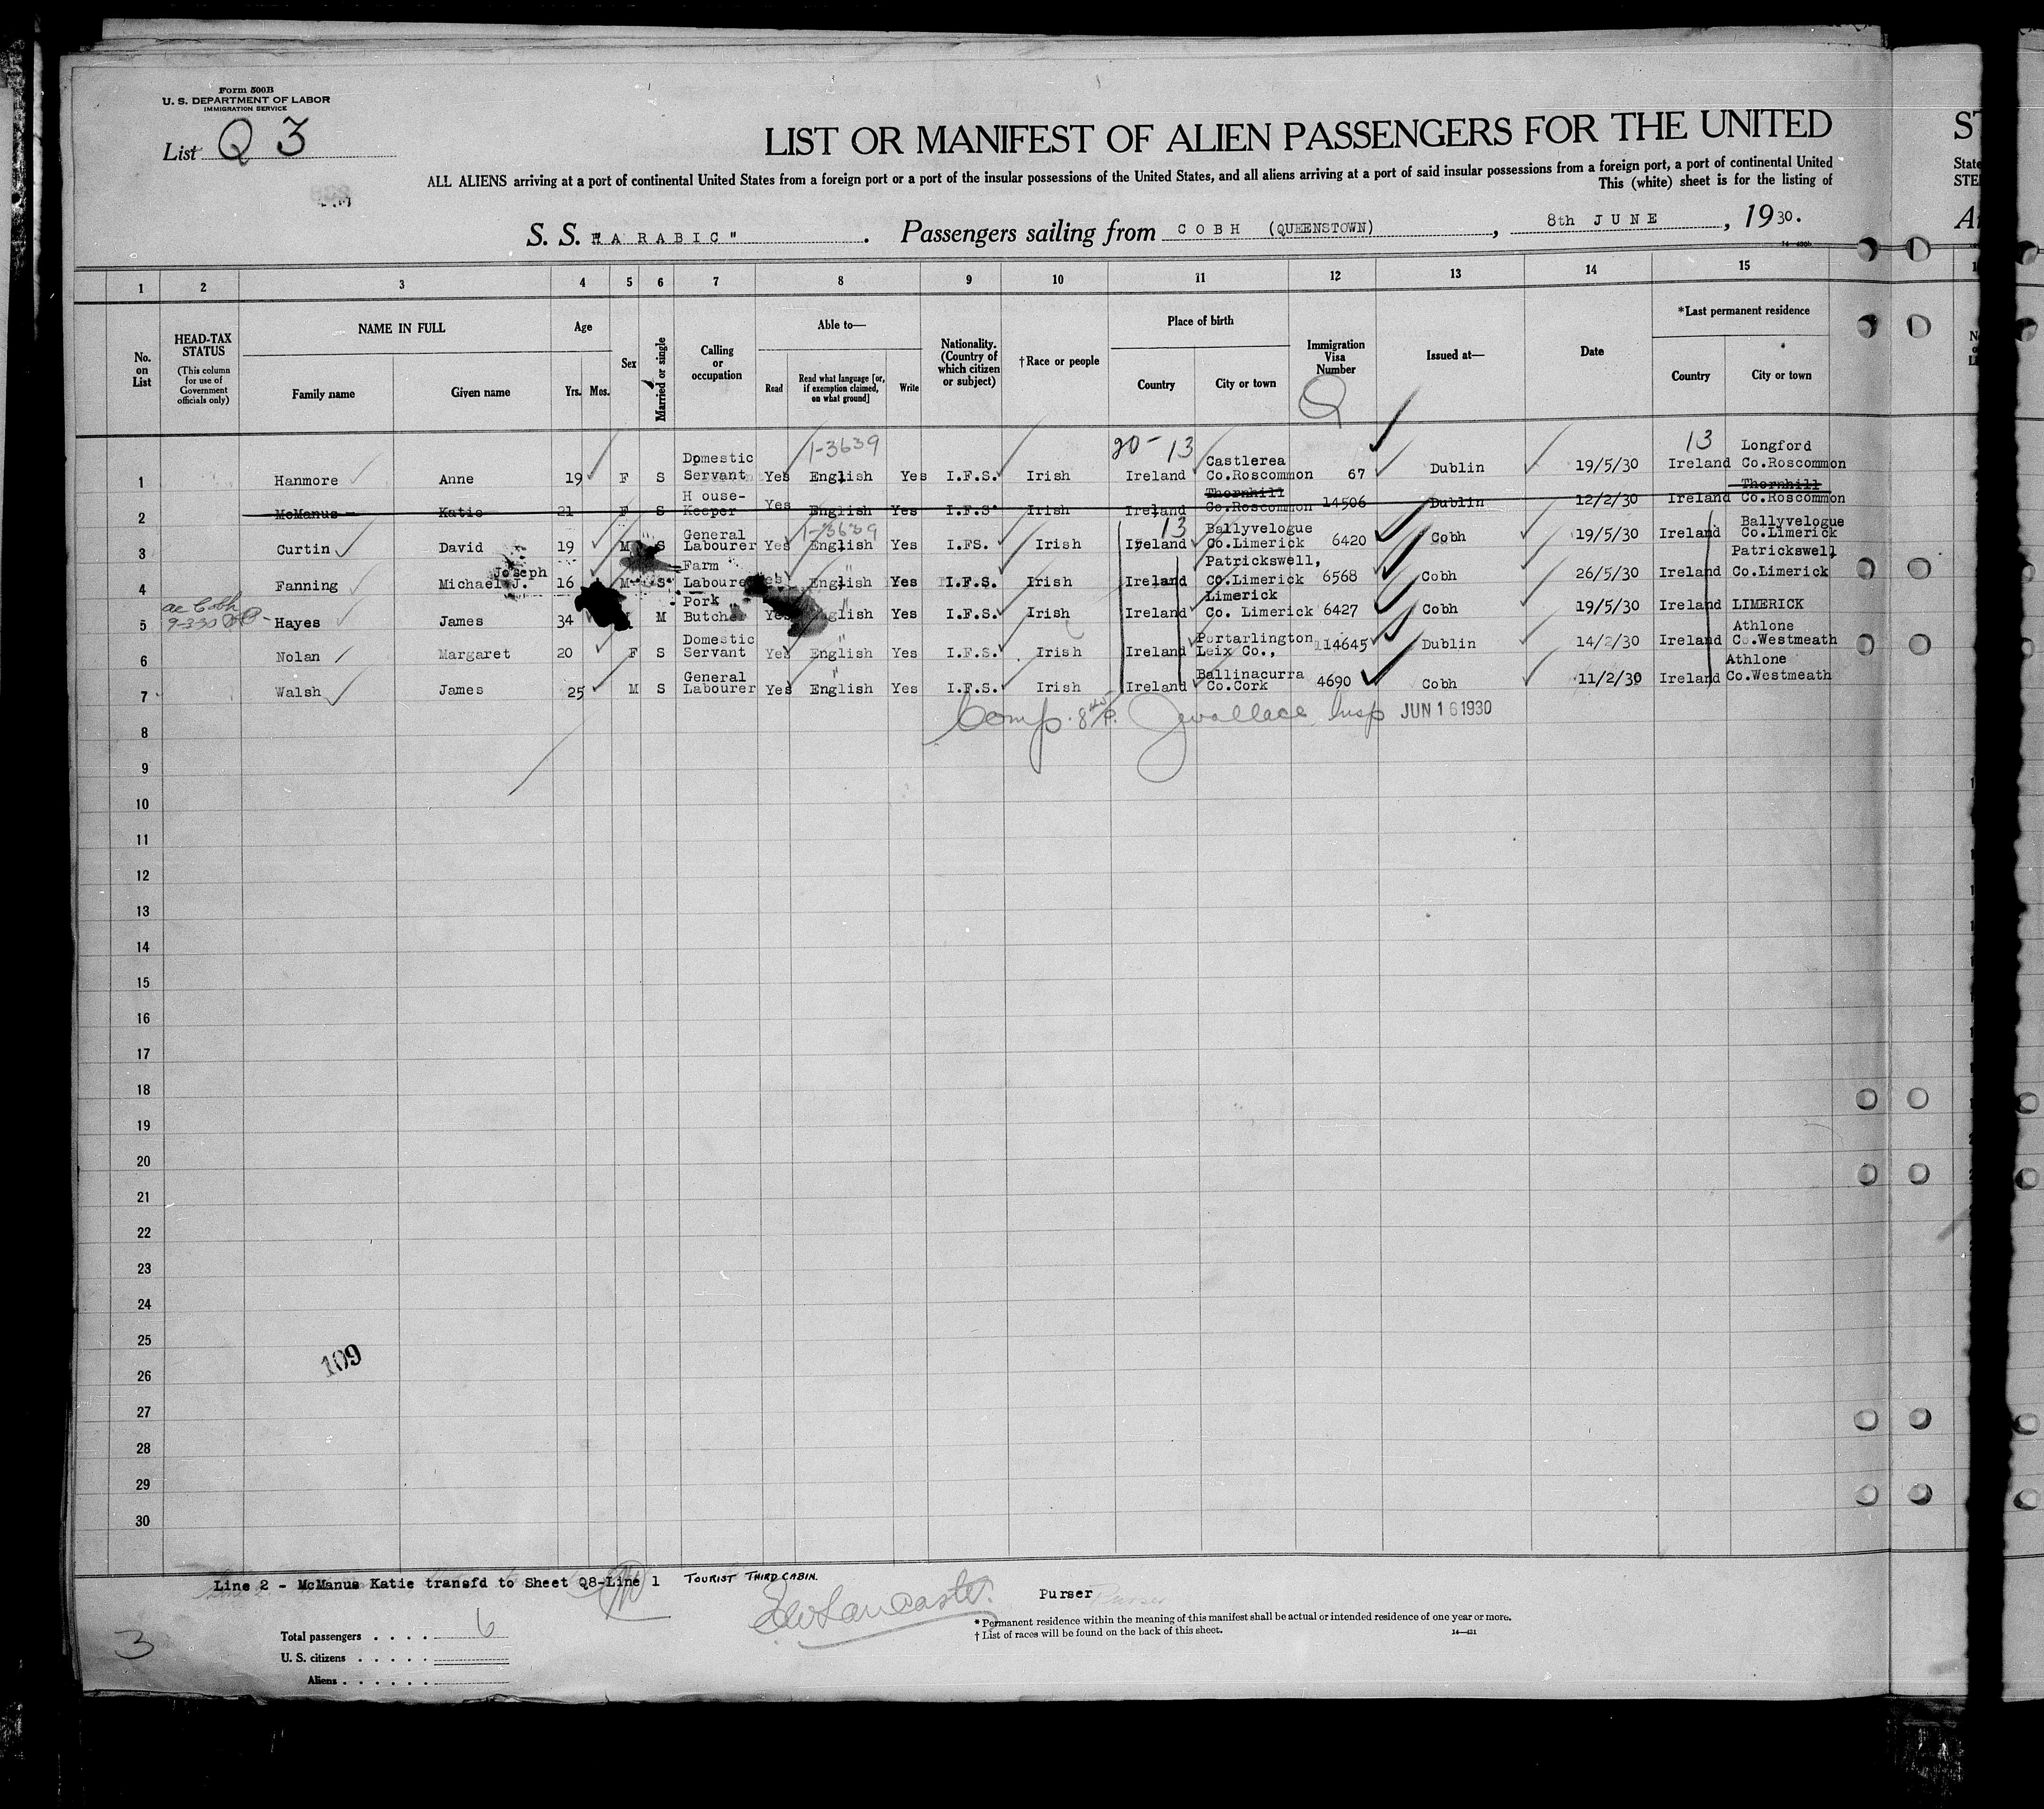 Form 500B
U. S. DEPARTMENT OF LABOR
IMMIGRATION SERVICE
List Q 3
LIST OR MANIFEST OF ALIEN PASSENGERS FOR THE UNITED
ALL ALIENS arriving at a port of continental United States from a foreign port or a port of the insular possessions of the United States, and all aliens arriving at a port of said insular possessions from a foreign port, a port of continental United
This (white) sheet is for the listing of
S. S. "ARABIC". Passengers sailing from COBH (QUEENSTOWN), 8th JUNE, 1930.
1 2 3 4 5 6 7 8 9 10 11 12 13 14 15
No. on List
HEAD-TAX STATUS (This column for use of Government officials only)
NAME IN FULL Family name Given name
Age Yrs. Mos.
Sex
Married or single
Calling or occupation
Able to— Read Read what language [or, if exemption claimed, on what ground] Write
Nationality. (Country of which citizen or subject)
†Race or people
Place of birth Country City or town
Immigration Visa Number
Q
Issued at—
Date
*Last permanent residence Country City or town
1-3639 20- 13 13
1 Hanmore Anne 19 F S Domestic Servant Yes English Yes I.F.S. Irish Ireland Castlerea Co.Roscommon 67 Dublin 19/5/30 Ireland Longford Co.Roscommon
2 McManus Katie 21 F S House-Keeper Yes English Yes I.F.S. Irish Ireland Thornhill Co.Roscommon 14506 Dublin 12/2/30 Ireland Thornhill Co.Roscommon
1-3639 13
3 Curtin David 19 M S General Labourer Yes English Yes I.FS. Irish Ireland Ballyvelogue Co.Limerick 6420 Cobh 19/5/30 Ireland Ballyvelogue Co.Limerick
4 Fanning Michael J. Joseph 16 M S Farm Laboure es English Yes I.F.S. Irish Ireland Patrickswell, CO.Limerick 6568 Cobh 26/5/30 Ireland Patrickswell Co.Limerick
5 Hayes James 34 M Pork Butcher Yes English Yes I.F.S. Irish Ireland Limerick Co. Limerick 6427 Cobh 19/5/30 Ireland LIMERICK
6 Nolan Margaret 20 F S Domestic Servant Yes English Yes I.F.S. Irish Ireland Portarlington Leix Co., 14645 Dublin 14/2/30 Ireland Athlone Co.Westmeath
7 Walsh James 25 M S General Labourer Yes English Yes I.F.S. Irish Ireland Ballinacurra Co.Cork 4690 Cobh 11/2/30 Ireland Athlone Co.Westmeath
Comp. Jwallace Insp JUN 16 1930
8
9
10
11
12
13
14
15
16
17
18
19
20
21
22
23
24
25
109
26
27
28
29
30
Line 2 - McManus Katie transfd to Sheet Q8-Line 1 TOURIST THIRD CABIN.
Purser
* Permanent residence within the meaning of this manifest shall be actual or intended residence of one year or more.
† List of races will be found on the back of this sheet.
3
Total passengers . . . . 6
U. S. citizens . . . . .
Aliens . . . . . .